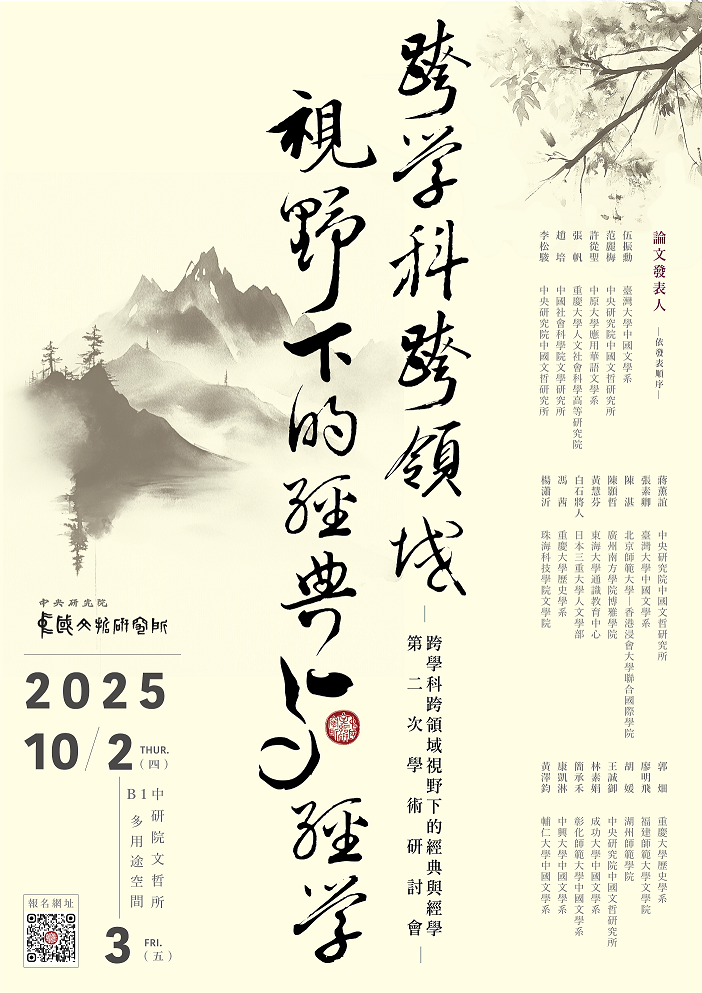 跨学科跨領域
視野下的經典与經学
—跨學科跨領域視野下的經典與經學
第二次學術研討會—
論文發表人 —依發表順序—
伍振勳 臺灣大學中國文學系
范麗梅 中央研究院中國文哲研究所
許從聖 中原大學應用華語文學系
張帆 重慶大學人文社會科學高等研究院
趙培 中國社會科學院文學研究所
李松駿 中央研究院中國文哲研究所
蔣薰誼 中央研究院中國文哲研究所
張素卿 臺灣大學中國文學系
陳湛 北京師範大學—香港浸會大學聯合國際學院
陳顥哲 廣州南方學院博雅學院
黃慧芬 東海大學通識教育中心
白石將人 日本三重大學人文學部
馮茜 重慶大學歷史學系
楊瀟沂 珠海科技學院文學院
郭畑 重慶大學歷史學系
廖明飛 福建師範大學文學院
胡媛 湖州師範學院
王誠御 中央研究院中國文哲研究所
林素娟 成功大學中國文學系
簡承禾 彰化師範大學中國文學系
康凱淋 中興大學中國文學系
黃澤鈞 輔仁大學中國文學系
中央研究院
中國文哲研究所
2025
10/2 THUR.（四）
中研院文哲所
B1多用途空間
3 FRI.（五）
報名網址